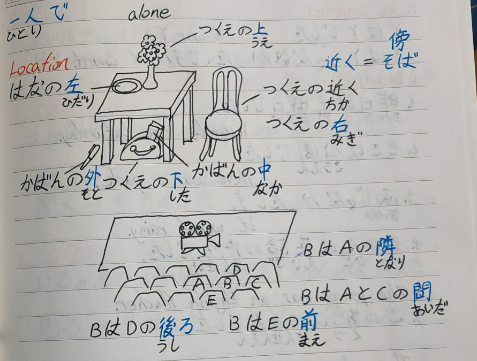 一人で alone
ひとり
つくえの上
うえ
傍
近く = そば
Location
はなの左
ひだり
つくえの近く
ちか
つくえの右
みぎ
かばんの外
そと
つくえの下
した
かばんの中
なか
D
A B C
E
BはAの隣
となり
BはAとCの間
あいだ
BはDの後ろ
うし
BはEの前
まえ